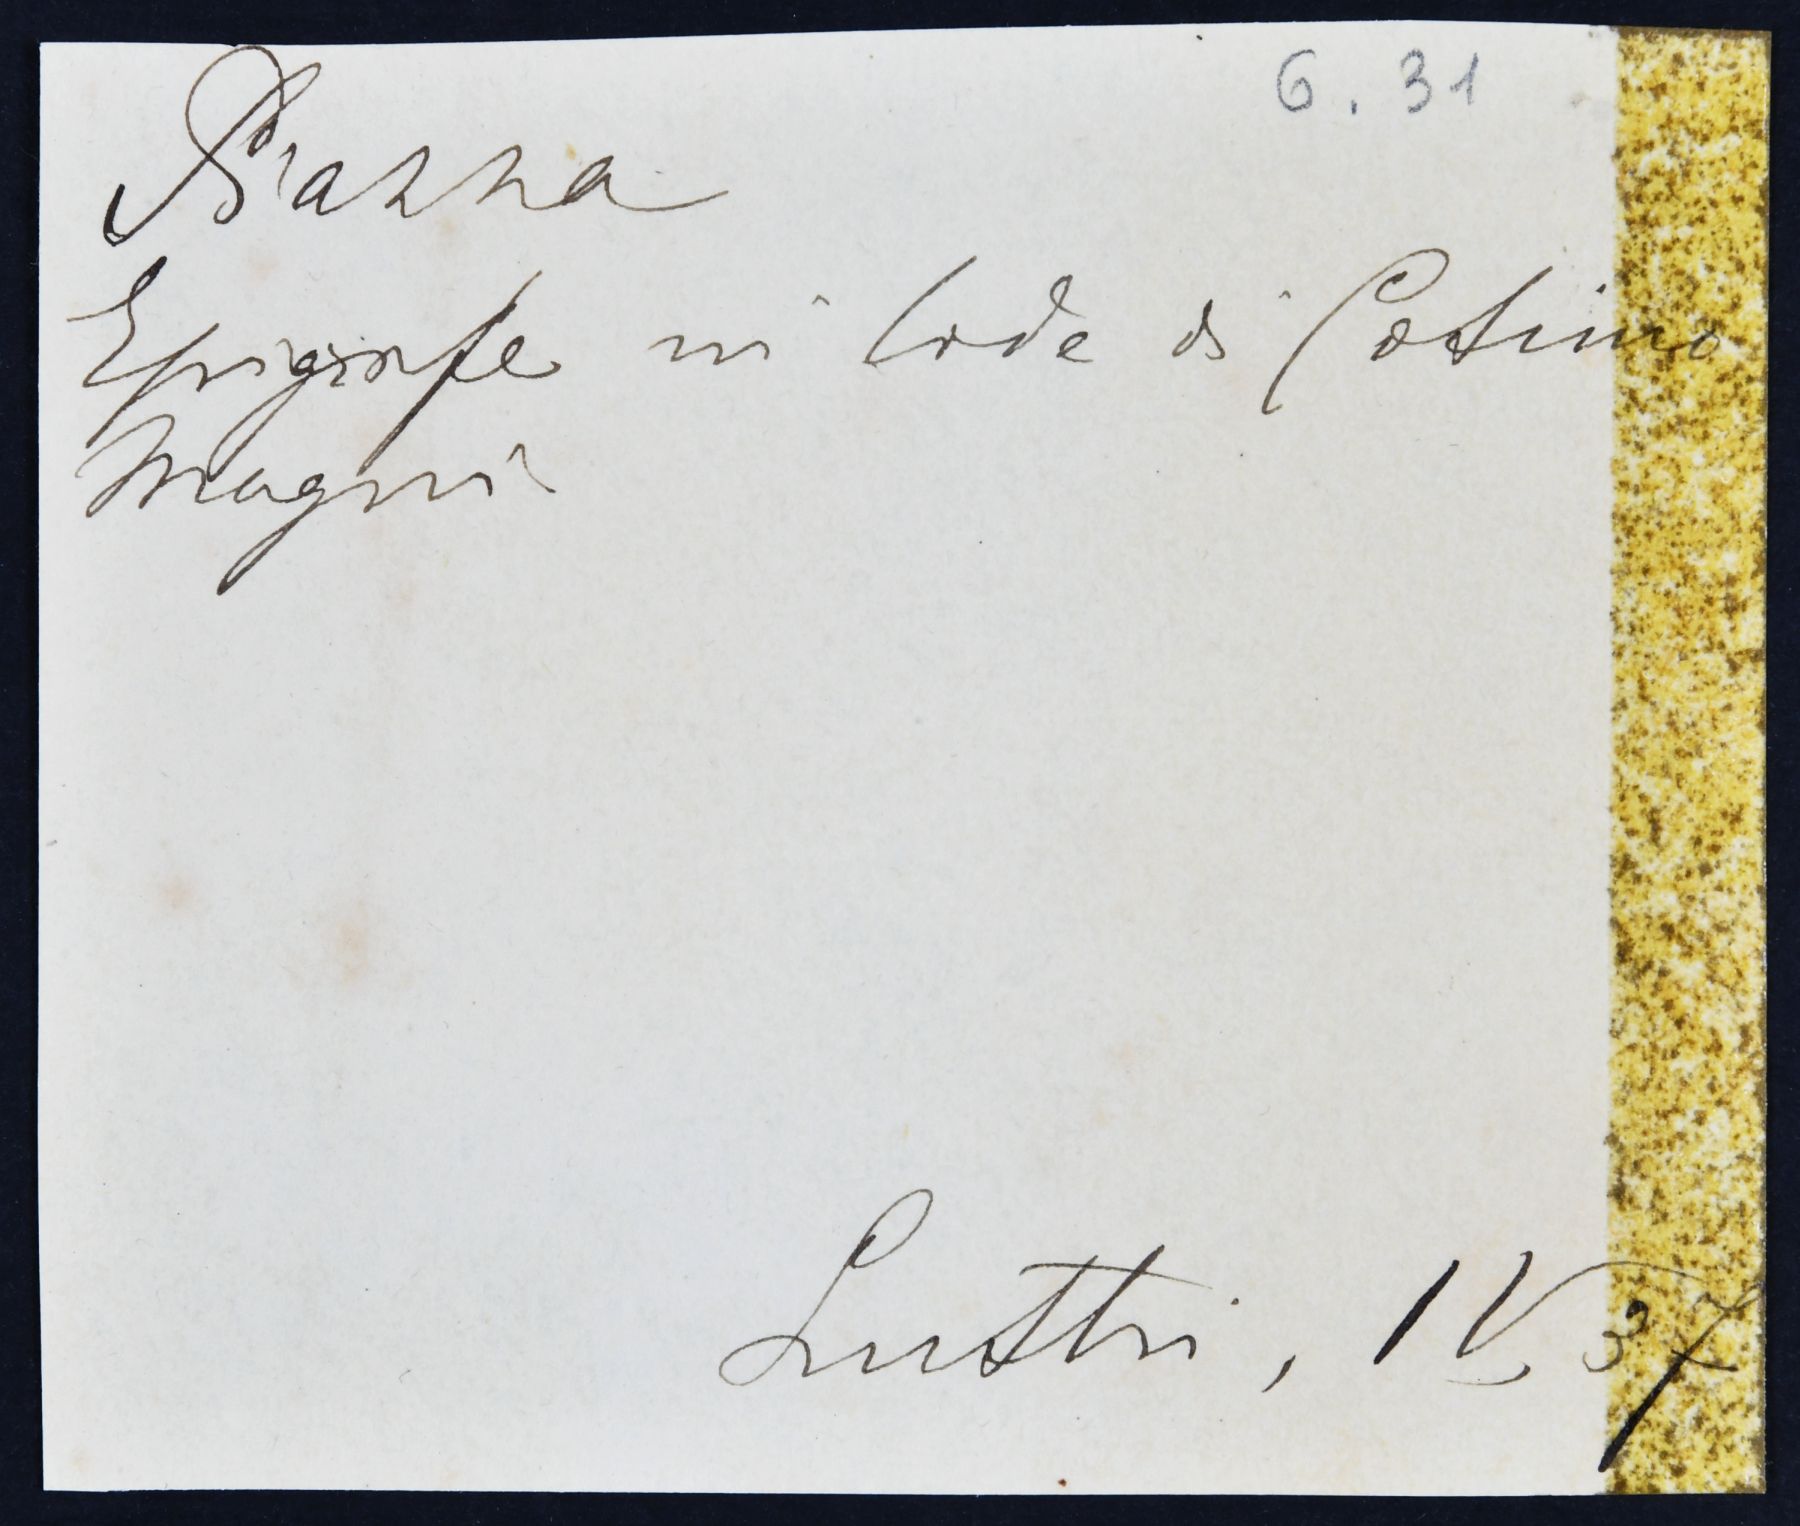 6.31
Piazza
Epigrafe in lode di Cosimo
Magni
Lustri, IV, 37